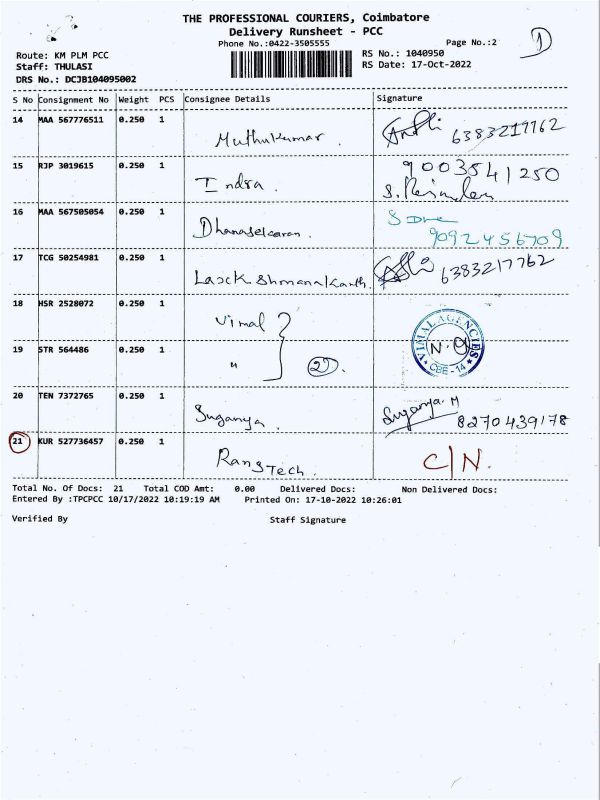 THE PROFESSIONAL COURIERS, Coimbatore
Delivery Runsheet - PCC
Phone No.:0422-3505555
Page No.:2
1
Route: KM PLM PCC
Staff: THULASI
DRS No.: DCJB104095002
RS No.: 1040950
RS Date: 17-Oct-2022
S No Consignment No Weight PCS Consignee Details Signature
14 MAA 567776511 0.250 1 Muthukumar 6383217762
15 RJP 3019615 0.250 1 Indra. 9003541250
16 MAA 567505054 0.250 1 Dhanasekaran. 9092456709
17 TCG 50254981 0.250 1 Lakshmanakanth. 6383217762
18 HSR 2528072 0.250 1 Vimal
VIMAL AGENCIES
CBE-14
19 STR 564486 0.250 1 " 2
20 TEN 7372765 0.250 1 Suganya. Suganya. M 8270439178
21 KUR 527736457 0.250 1 Rangtech. C/N.
Total No. Of Docs: 21 Total COD Amt: 0.00 Delivered Docs: Non Delivered Docs:
Entered By :TPCPCC 10/17/2022 10:19:19 AM Printed On: 17-10-2022 10:26:01
Verified By Staff Signature